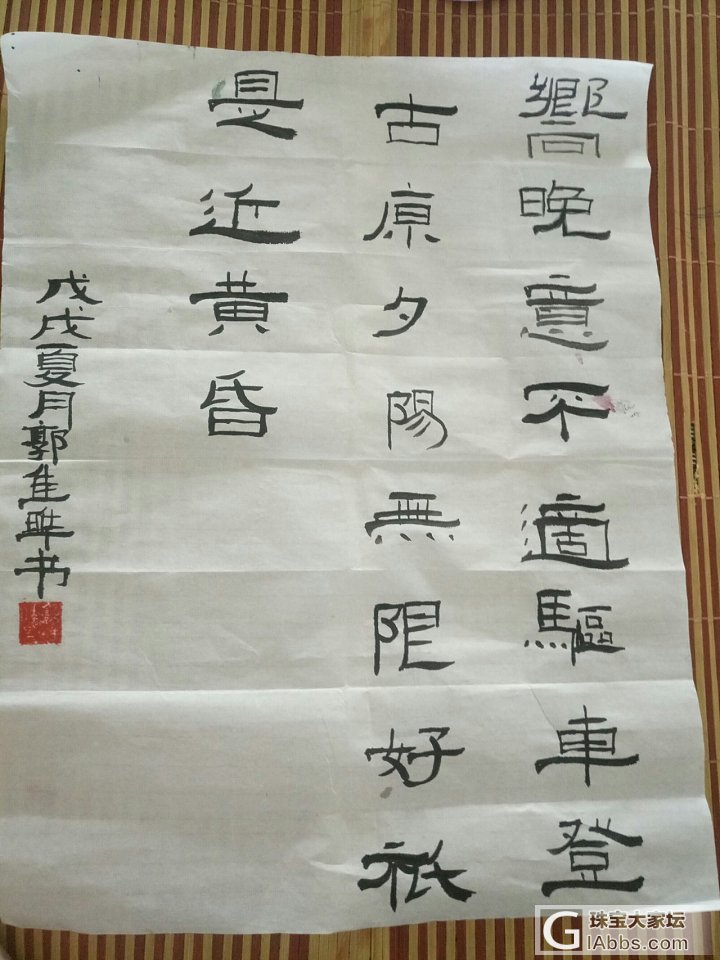 嚮晚意不適驅車登
古原夕陽無限好祇
是近黄昏
戊戌夏月郭佳书
珠宝大家坛
GIAbbs.com